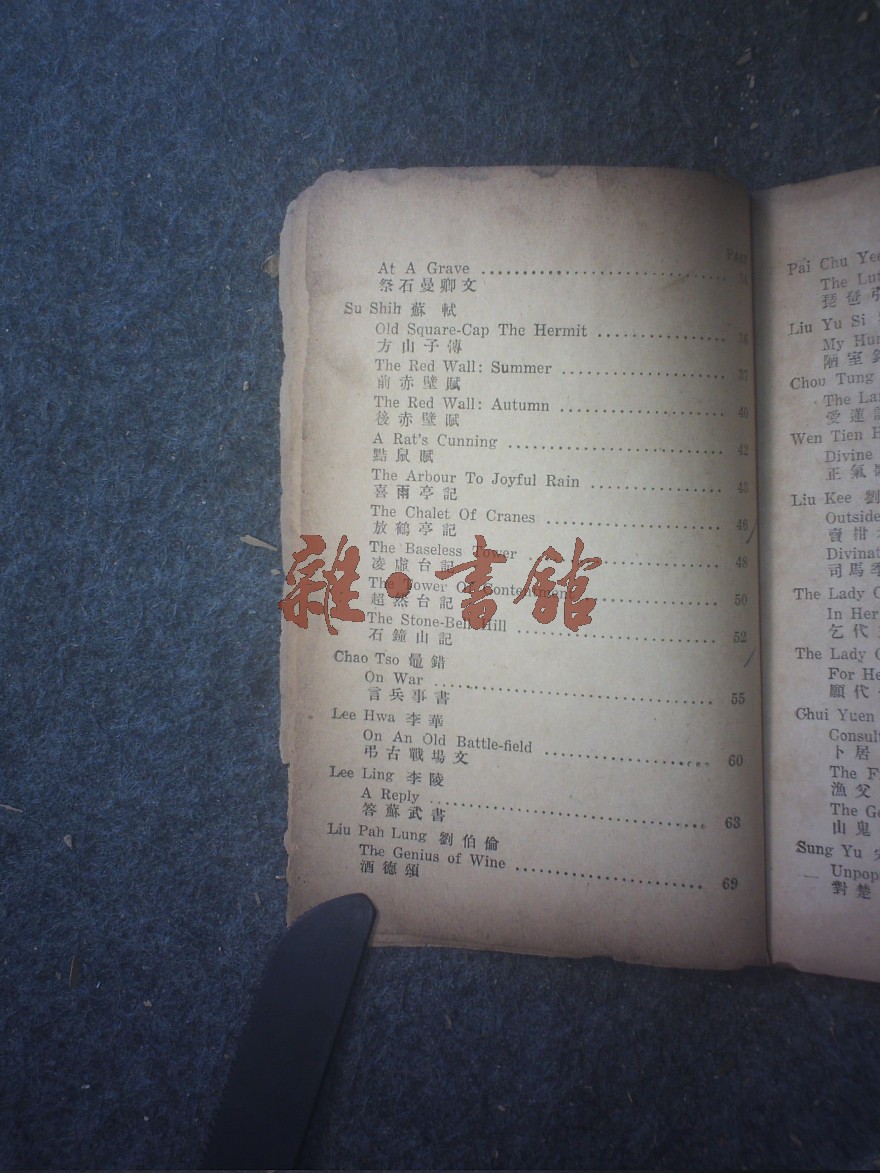 Page
At A Grave ........ 34
祭石曼卿文
Su Shih 蘇 軾
Old Square-Cap The Hermit ........ 36
方山子傳
The Red Wall: Summer ........ 37
前赤壁賦
The Red Wall: Autumn ........ 40
後赤壁賦
A Rat's Cunning ........ 42
黠鼠賦
The Arbour To Joyful Rain ........
喜雨亭記
The Chalet Of Cranes ........ 46
放鶴亭記
The Baseless Tower ........ 48
凌虛台記
The Tower Of Contentment ........ 50
超然台記
The Stone-Bell Hill ........ 52
石鐘山記
Chao Tso 鼂錯
On War ........ 55
言兵事書
Lee Hwa 李華
On An Old Battle-field ........ 60
弔古戰場文
Lee Ling 李陵
A Reply ........ 63
答蘇武書
Liu Pah Lung 劉伯倫
The Genius of Wine ........ 69
酒德頌
雜·書館
Pai Chu Yee
The Lut
琵琶
Liu Yu Si
My Hum
陋室
Chou Tung
The La
愛蓮
Wen Tien H
Divine
正氣
Liu Kee 劉
Outside
賣柑
Divinat
司馬季
The Lady O
In Her
乞代
The Lady O
For He
願代
Chui Yuen
Consult
卜居
The F
漁父
The Go
山鬼
Sung Yu
Unpop
對楚